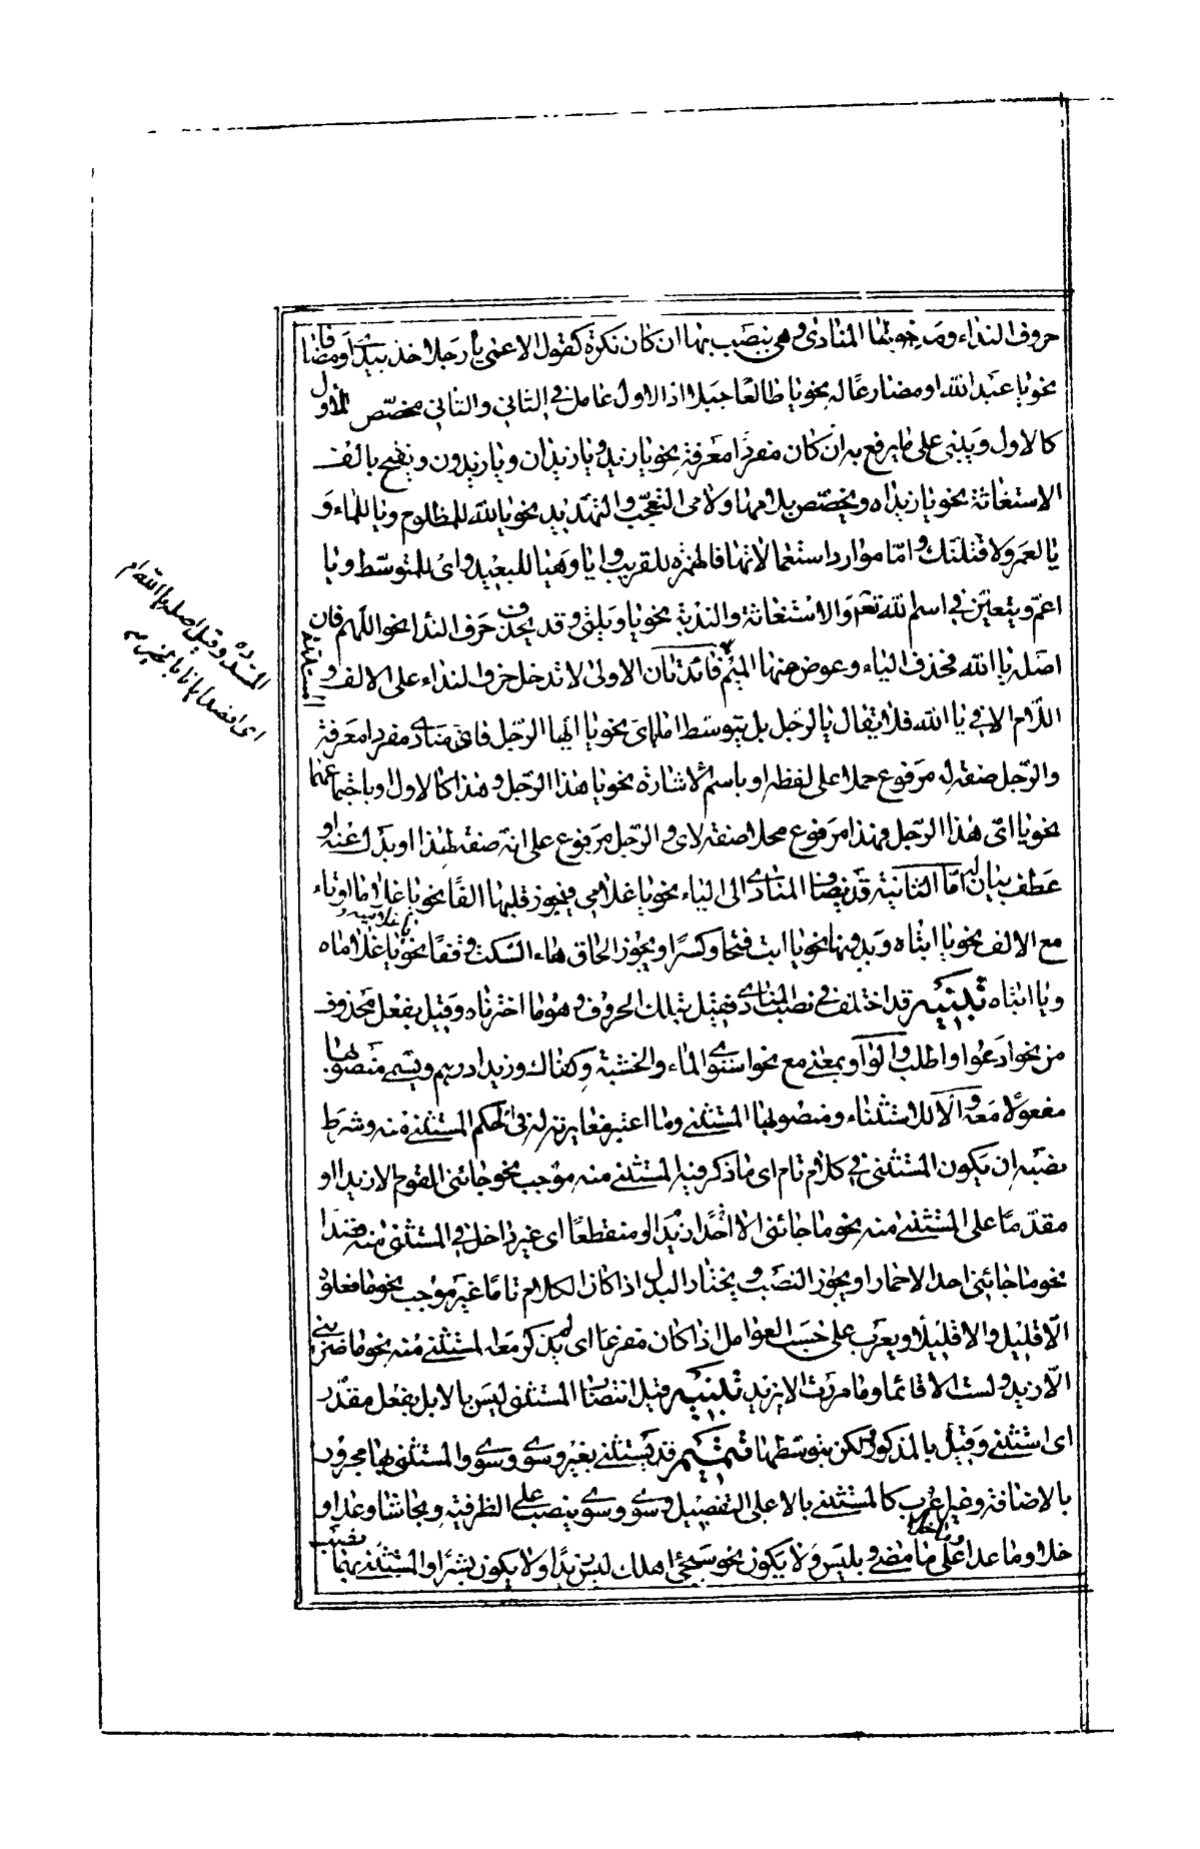 حروف النداء ومدخولها المنادى وهى ينصب بها ان كان نكرة كقول الاعمى يا رجلا خذ بيدى او مضافا
نحو يا عبد الله او مضارعا له نحو يا طالعا جبلا اذ الاول عامل فى الثانى والثانى مخصّص للاول
كالاول ويبنى على ما يرفع به ان كان مفردا معرفة نحو يا زيد ويا زيدان ويا زيدون ويفتح بالف
الاستغاثة نحو يا زيداه ويخصّص بلامها ولامى التعجّب والتهديد نحو يا لله للمظلوم ويا للماء و
يا لعمر ولاقتلنك وامّا موارد استعمالاتها فالهمزة للقريب وايا وهيا للبعيد واى للمتوسّط ويا
اعمّ ويتعيّن فى اسم الله تعم والاستغاثة والندبة نحو يا ويلتى وقد يحذف حرف النداء نحو اللهم فان
اصله يا الله فحذف الياء وعوض عنها الميم فائدتان الاولى لا تدخل حرف لنداء على الالف و
اللّام الا فى يا الله فلا يقال يا لرجل بل يتوسط اما اىّ نحو يا ايّها الرّجل فاىّ منادى مفرد معرفة
والرّجل صفة له مرفوع حملا على لفظه او باسم الاشارة نحو يا هذا الرّجل وهذا كالاول او باجتماعهما
نحو يا اىّ هذا الرّجل فهذا مرفوع محلا صفة لاى والرّجل مرفوع على انّه صفة لهذا او بدل عنه او
عطف بيان له امّا الثانية قد يضاف المنادى الى لياء نحو يا غلامى فيجوز قلبها الفا نحو يا غلاما او تاء
مع الالف نحو يا ابتاه وبدونها نحو يا ابت فتحا وكسرا ويجوز الحاق هاء السّكت وقفا نحو يا غلاماه
ويا ابتاه تنبيه قد اختلف فى نصب المنادى فقيل بتلك الحروف وهو ما اخترناه وقيل بفعل محذوف
من نحو ادعوا واطلب والواو بمعنى مع نحو استوى الماء والخشبة وكفاك وزيدا درهم ويسمى منصوبها
مفعولا معه والّا للاستثناء ومنصوبها المستثنى وما اعتبر مغايرته له فى الحكم المستثنى منه وشرط
نصبه ان يكون المستثنى فى كلام تام اى ما ذكر فيه المستثنى منه موجب نحو جائنى القوم الا زيدا او
مقدّما على المستثنى منه نحو ما جائنى الا احدا زيدا او منقطعا اى غير داخل فى المستثنى منه
نحو ما جائنى احد الا حمارا ويجوز النصب ويختار البدل اذا كان الكلام تامّا غير موجب نحو ما فعلوه
الّا قليل والا قليلا ويعرب على حسب العوامل اذا كان مفرغا اى لم يذكر معه لمستثنى منه نحو ما ضربنى
الّا زيد ولست الا قائما وما مررت الا بزيد تنبيه قيل انتصاب المستثنى ليس بالا بل بفعل مقدّر
اى استثنى وقيل بالمذكور لكن بتوسّطها تتميم قد يستثنى بغير وسوى وسوى والمستثنى بها مجرور
بالاضافة وغير يعرب كالمستثنى بالا على التفصيل وسوى وسوى ينصب على الظرفية وبحاشا وعدا و
خلا وما عدا وما خلا على ما مضى وبليس ولا يكون نحو سيجئ اهلك ليس زيدا ولا يكون بشرا والمستثنى بهما